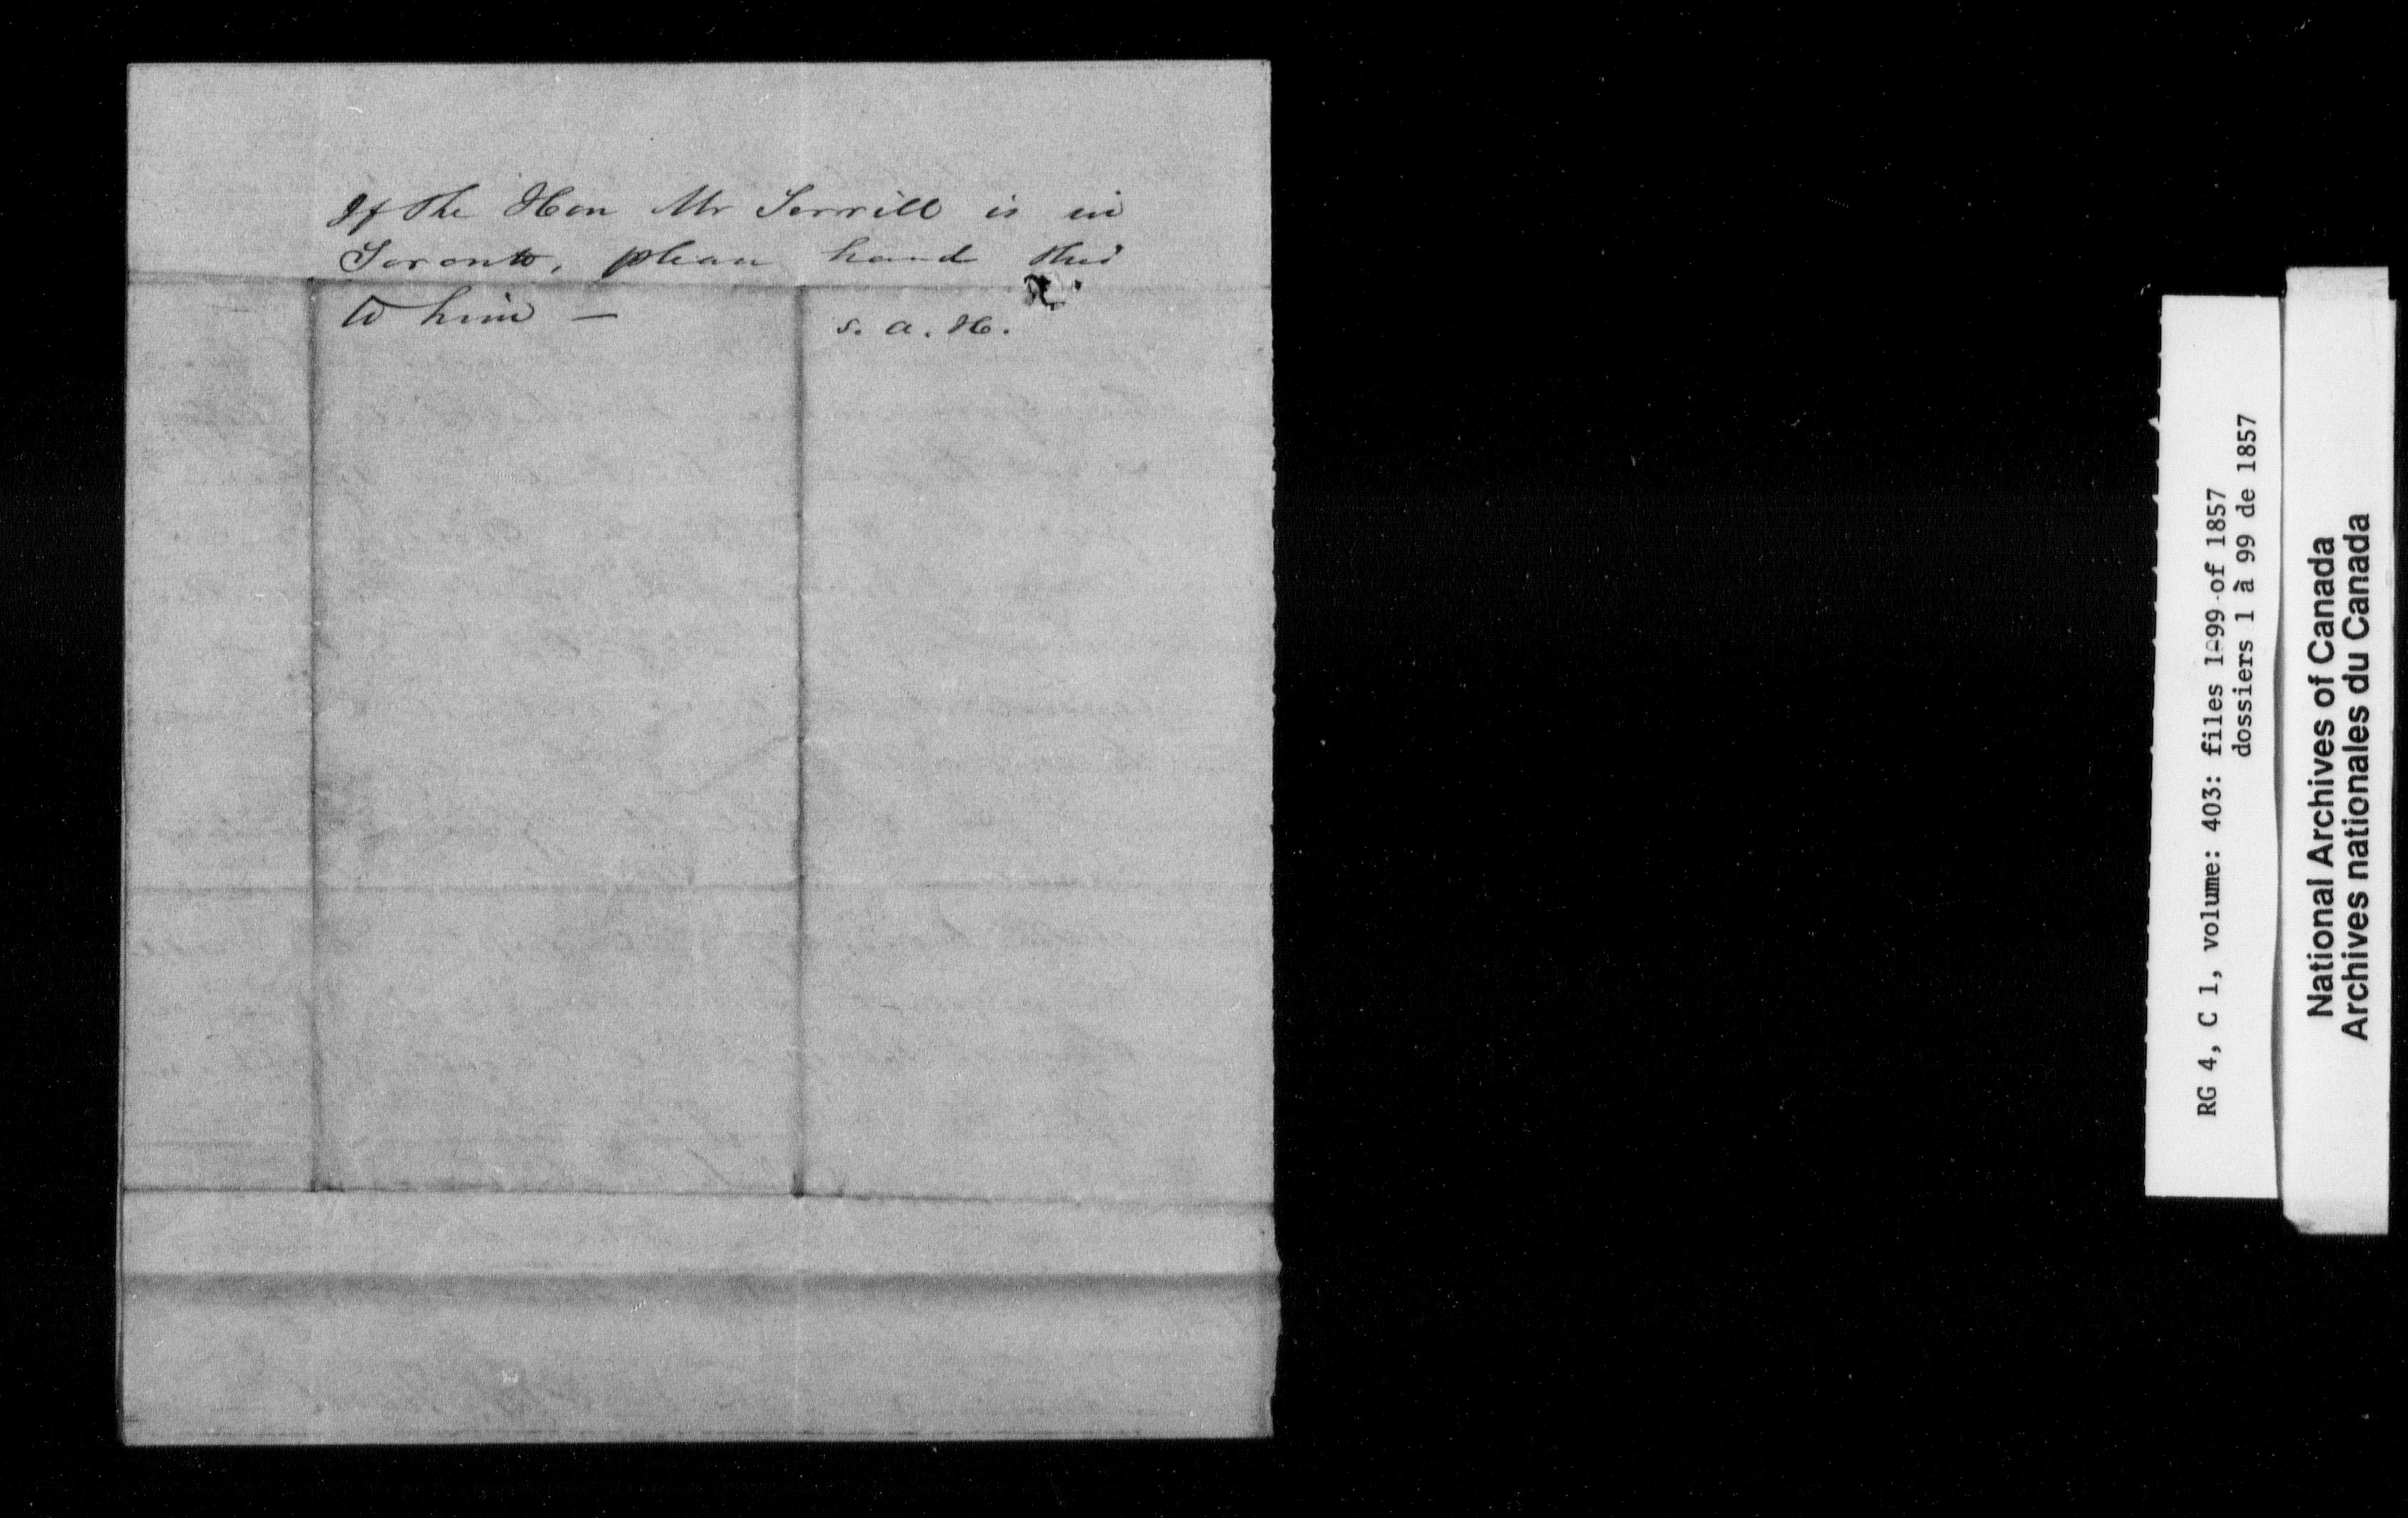 If the Hon Mr Terrill is in
Toronto, please hand this
to him —
S. A. H.
RG 4, C 1, volume: 403: files 1-99 of 1857
dossiers 1 à 99 de 1857
National Archives of Canada
Archives nationales du Canada